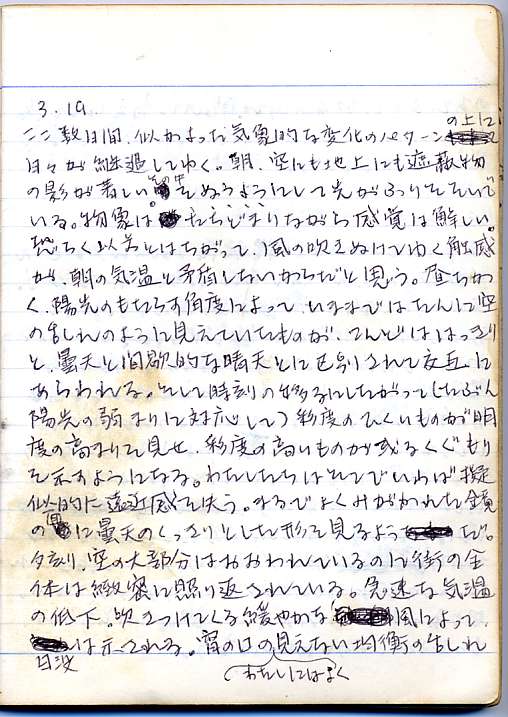 3.19
の上に
ここ数日間、似かよった気象的な変化のパターン
日々が継起してゆく。朝、空にも地上にも遮蔽物
の影が著しい。そのなかをぬうようにして光がふりそそいで
いる。物象は たちどまりながら感覚は鮮しい。
恐らく以前とはちがって、風の吹きぬけてゆく触感
が、朝の気温と矛盾しないからだと思う。昼ちか
く、陽光のもたらす角度によって、いままではたんに空
の乱れのように見えていたものが、こんどははっきり
と、曇天と間歇的な晴天とに区別されて交互に
あらわれる。そして時刻の移るにしたがって(たぶん
陽光の弱まりに対応して)彩度のひくいものが明
度の高まりを見せ、彩度の高いものが或るくぐもり
を示すようになる。わたしたちはそこでいわば擬
似的に遠近感を失う。まるでよくみがかれた鏡
の面に曇天のくっきりとした形を見るよう だ。
夕刻、空の大部分はおおわれているのに街の全
体は緻密に照り返されている。急速な気温
の低下。吹きつけてくる緩やかな 風によって、
日没は示される。宵の口の見えない均衡の乱れ
(わたしにはよく